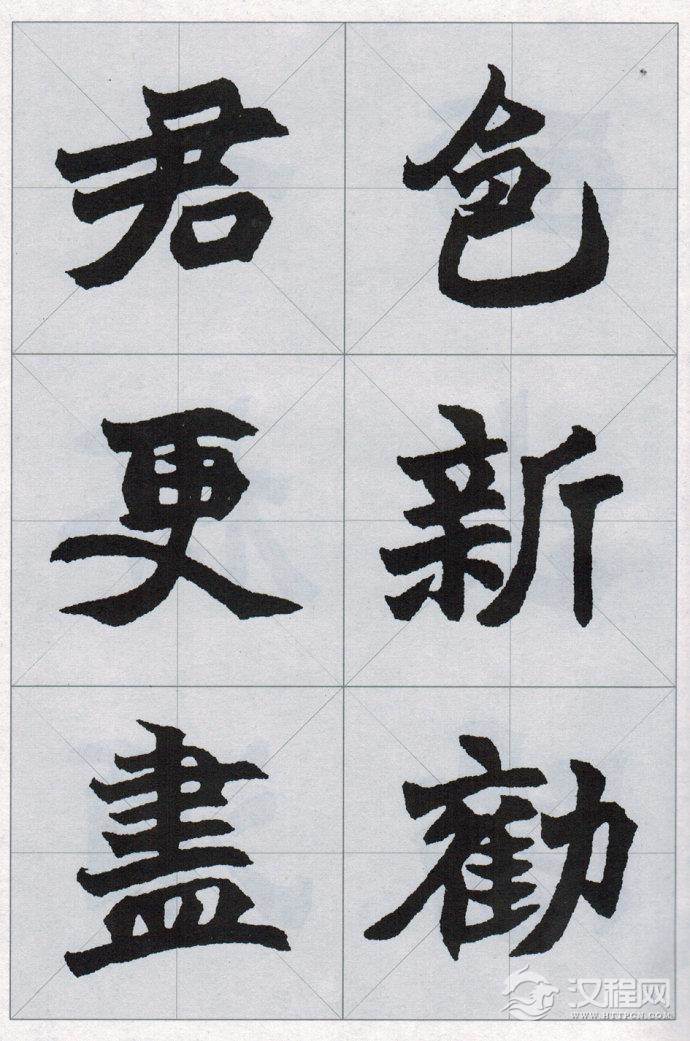 色新勸
君更盡
汉程网
WWW.HTTPCN.COM